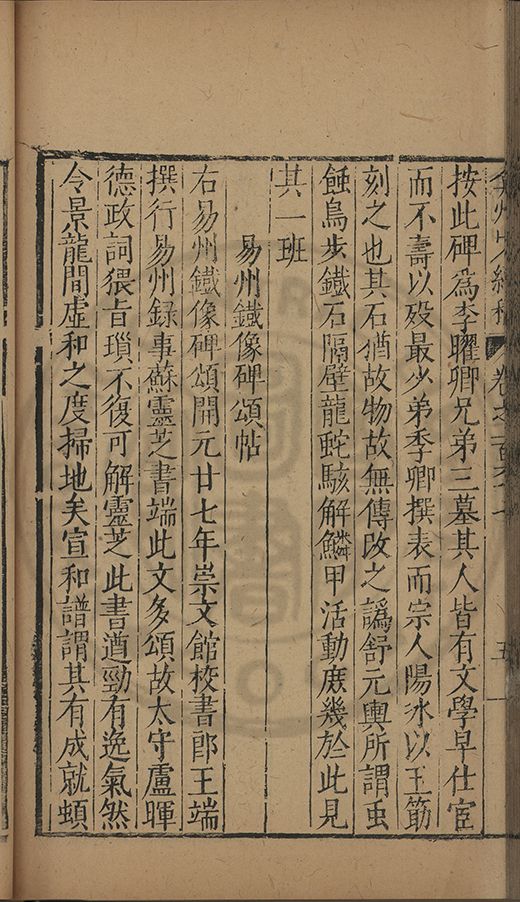 按此碑為李曜卿兄弟三墓其人皆有文學早仕宦
而不壽以歿最少弟季卿撰表而宗人陽冰以玉筯
刻之也其石猶故物故無傳改之譌舒元輿所謂虫
蝕鳥步鐵石隔壁龍蛇駭解鱗甲活動庶幾於此見
其一班
易州鐵像碑頌帖
右易州鐵像碑頌開元廿七年崇文館校書郎王端
撰行易州録事蘇靈芝書端此文多頌故太守盧暉
德政詞猥旨瑣不復可解靈芝此書遒勁有逸氣然
令景龍間虛和之度掃地矣宣和譜謂其有成就頓